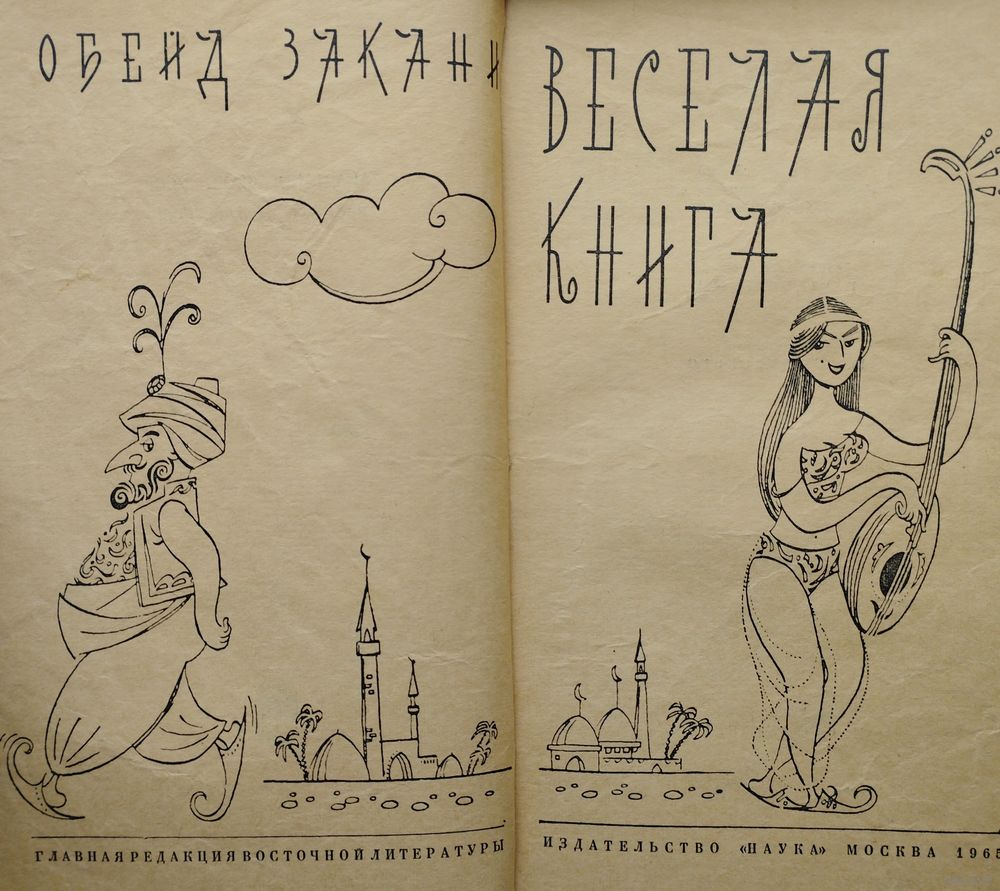 ОБЕЙД ЗАКАНИ
ВЕСЕЛАЯ
КНИГА
ГЛАВНАЯ РЕДАКЦИЯ ВОСТОЧНОЙ ЛИТЕРАТУРЫ
ИЗДАТЕЛЬСТВО «НАУКА» МОСКВА 1965